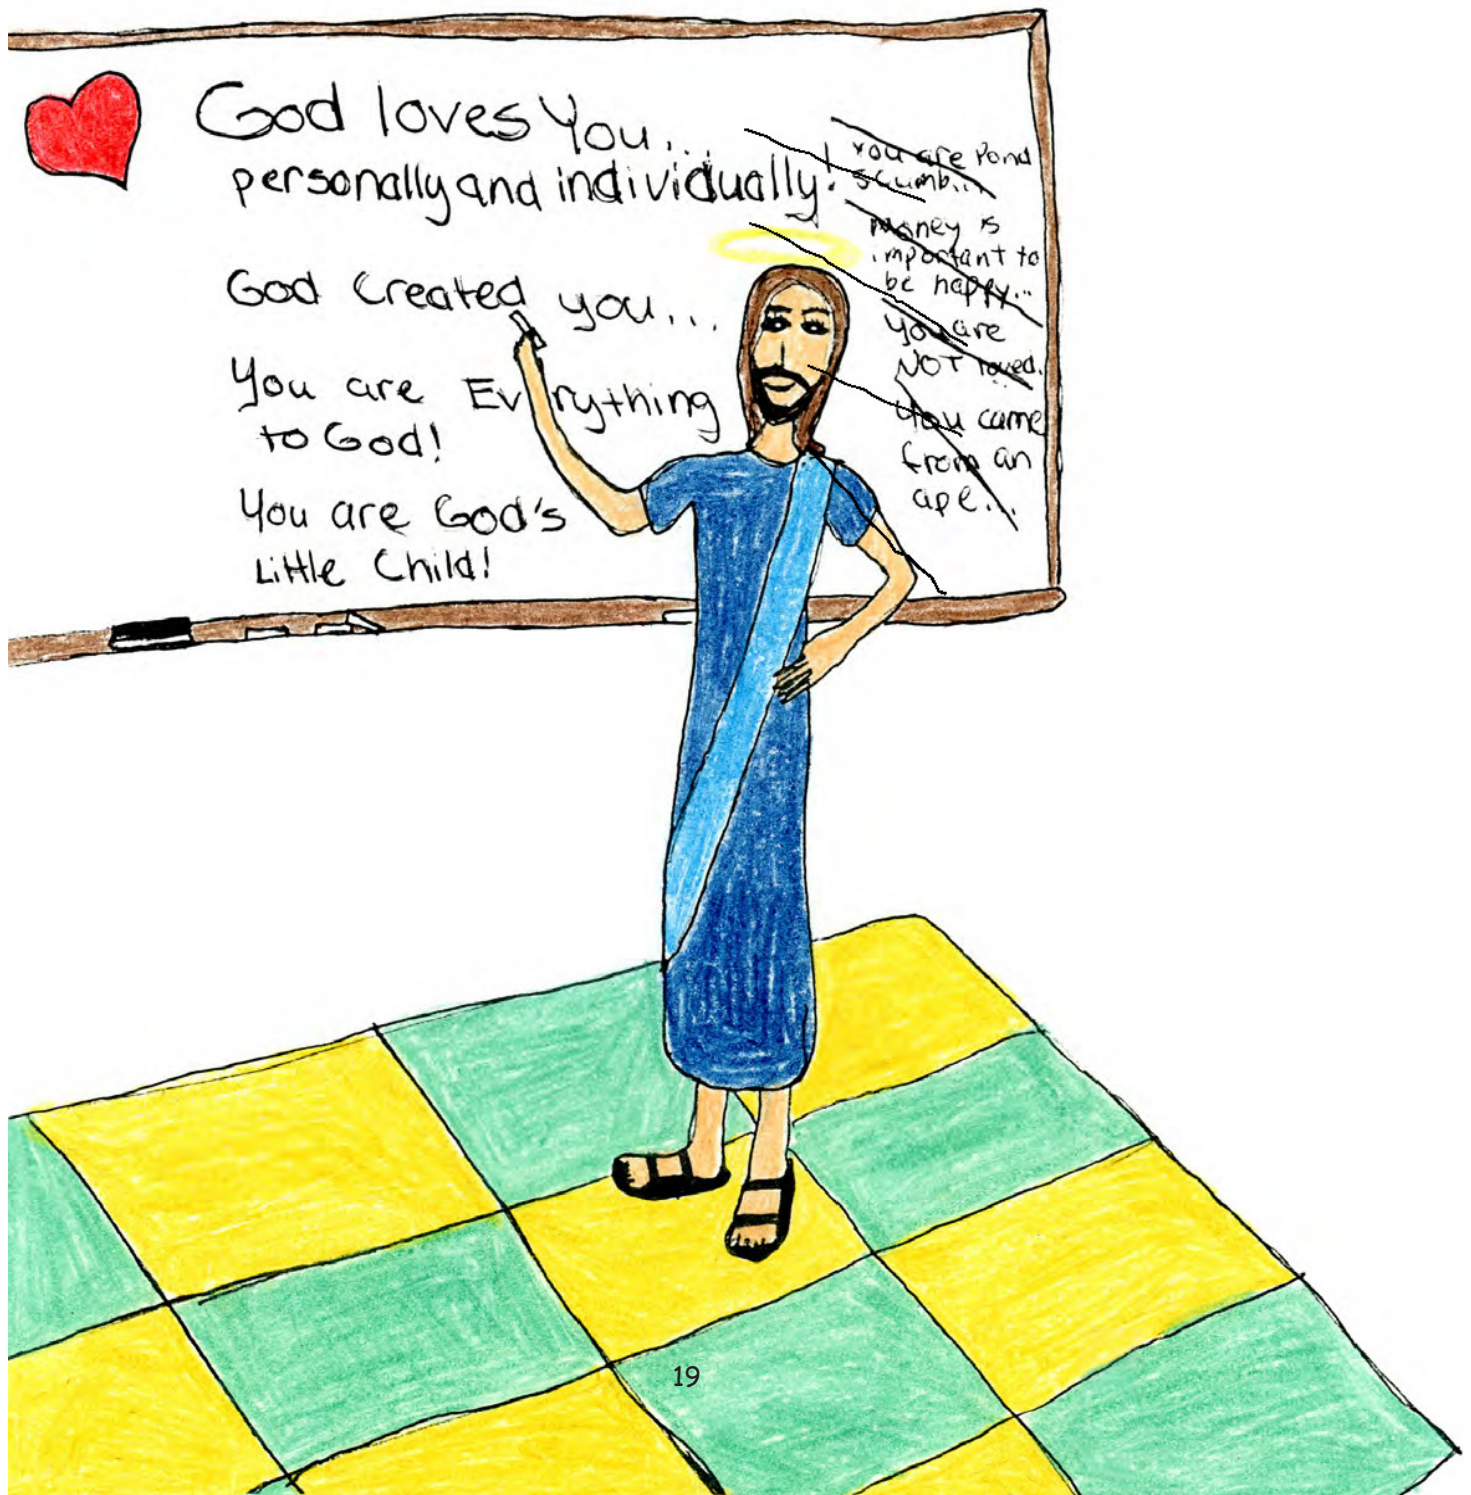 God loves You...
personally and individually!
God Created you...
You are Everything
to God!
You are God's
Little Child!
You are Pond
scumb...
Money is
important to
be happy...
You are
NOT loved.
You came
from an
ape...
19